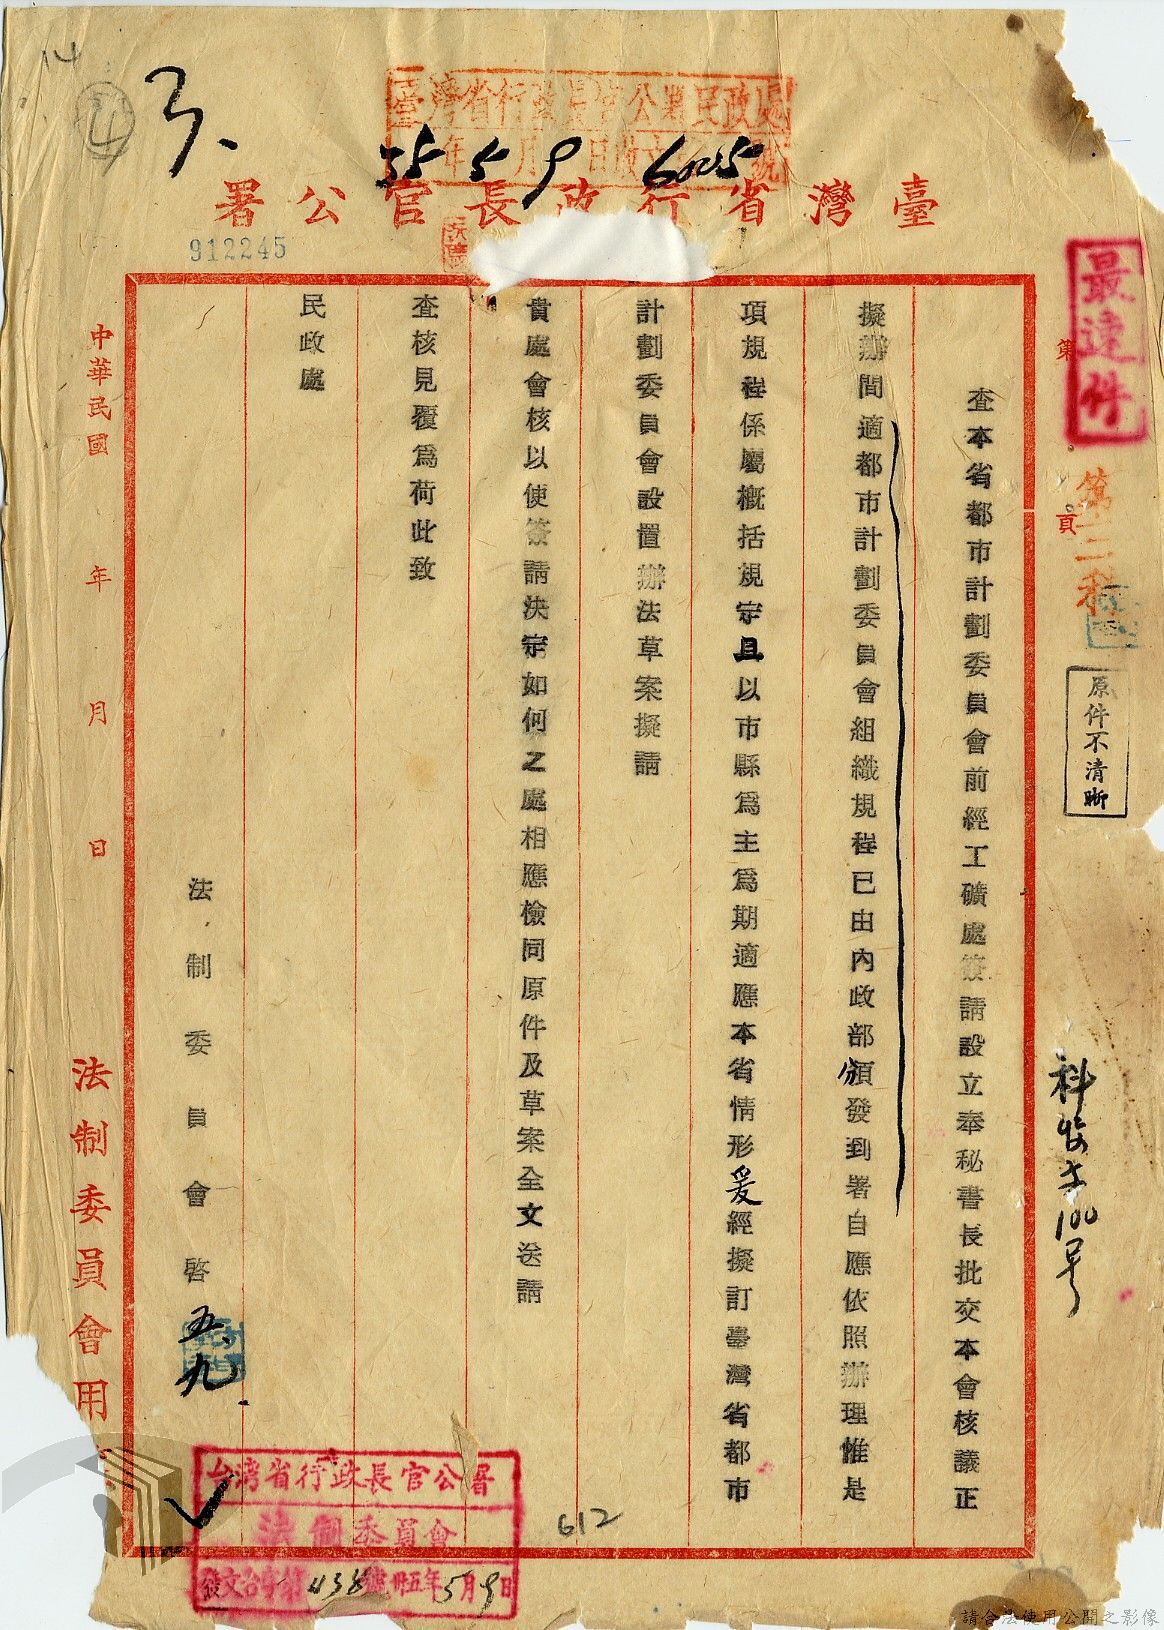 14
4
臺灣省行政長官公署民政處
35年5月9日收文 6005號
臺灣省行政長官公署
912245
最速件
第 頁
第二科
原件不清晰
科收文100号
查本省都市計劃委員會前經工礦處簽請設立奉秘書長批交本會核議正
擬辦間適都市計劃委員會組織規程已由內政部頒發到署自應依照辦理惟是
項規程係屬概括規定且以市縣為主為期適應本省情形爰經擬訂臺灣省都市
計劃委員會設置辦法草案擬請
貴處會核以便簽請決定如何之處相應檢同原件及草案全文送請
查核見覆為荷此致
民政處
法制委員會啓 五、九
中華民國 年 月 日
法制委員會用
台灣省行政長官公署
法制委員會
發文台字第438號卅五年5月9日
612
請合法使用公開之影像